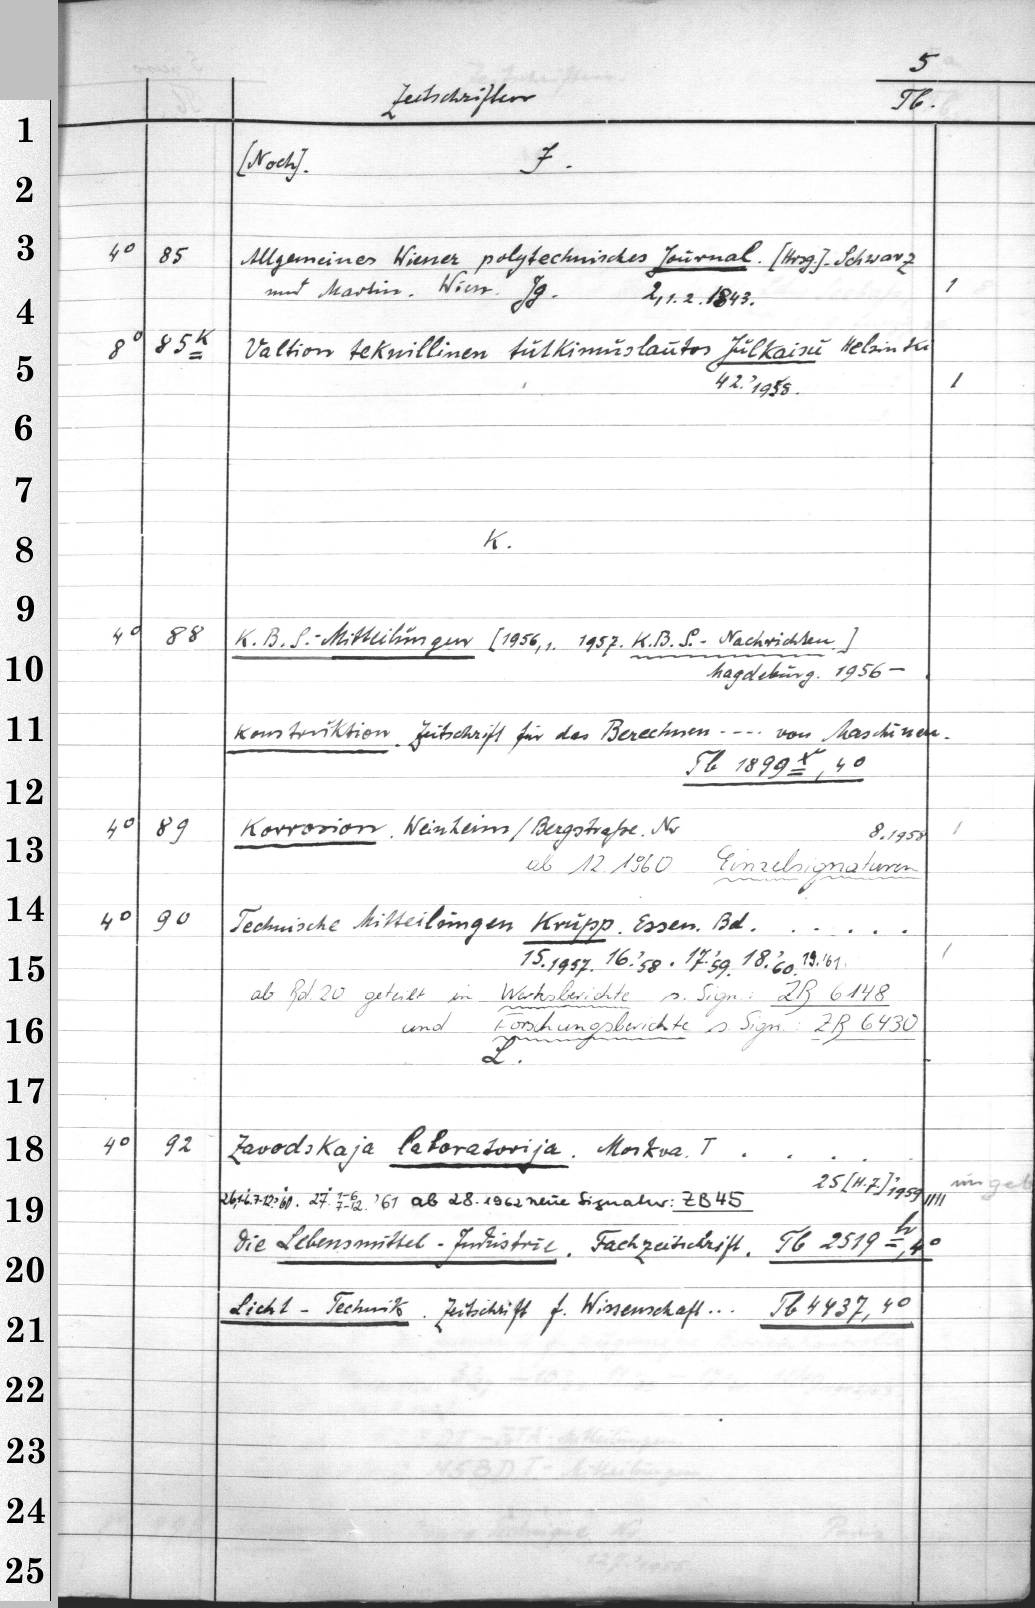 5
Zeitschriften Tb.
[Noch]. J.
4° 85 Allgemeines Wiener polytechnisches Journal. [Hrsg.] Schwarz
und Martin. Wien. Jg. 2,1.2.1843. 1
8° 85 k Valtion teknillinen tutkimuslaitos Julkaisu Helsinki
42.'1958. 1
K.
4° 88 K.B.S.-Mitteilungen [1956,1. 1957. K.B.S.-Nachrichten.]
Magdeburg. 1956-
Konstruktion. Zeitschrift für das Berechnen ---- von Maschinen.
Tb 1899 x, 4°
4° 89 Korrosion. Weinheim/Bergstraße. Nr 8.1958 1
ab 12.1960 Einzelsignaturen
4° 90 Technische Mitteilungen Krupp. Essen. Bd. . . . . .
15.1957. 16.'58. 17.'59. 18.'60. 19.'61. 1
ab Bd. 20 geteilt in Werksberichte s. Sign.: ZB 6148
und Forschungsberichte s. Sign.: ZB 6430
L.
4° 92 Zavodskaja laboratorija. Moskva. T . . . . .
25[H.7]'1959
27. 1-6 7-12. '61 ab 28.1962 neue Signatur: ZB 45
Die Lebensmittel-Industrie. Fachzeitschrift. Tb 2519 h, 4°
Licht-Technik. Zeitschrift f. Wissenschaft... Tb 4437, 4°
1
2
3
4
5
6
7
8
9
10
11
12
13
14
15
16
17
18
19
20
21
22
23
24
25